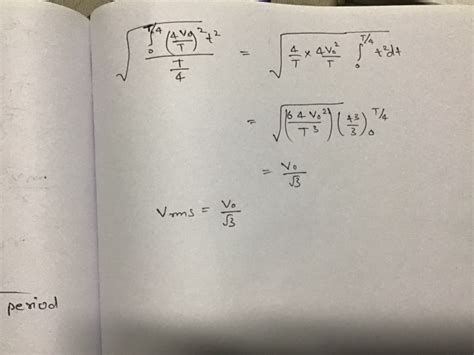 √( ∫₀^{T/4} (4V₀/T)² t² / (T/4) ) = √( 4/T × 4V₀²/T ∫₀^{T/4} t² dt )
= √( (64V₀²/T³) (t3/3)₀^{T/4} )
= V₀/√3
Vrms = V₀/√3
period